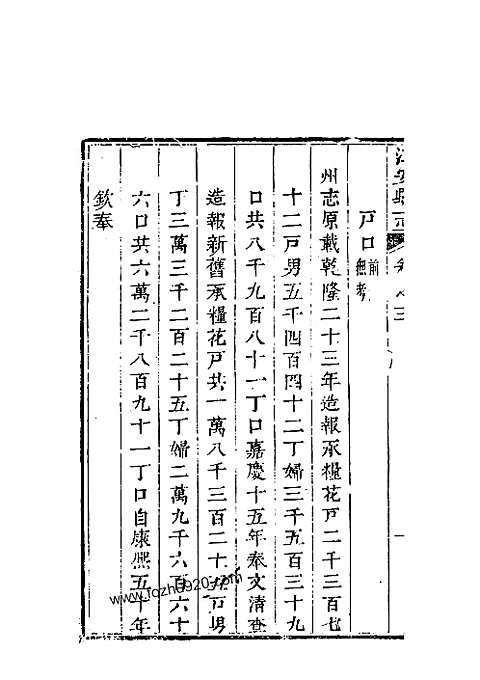 江安縣志 卷之三
戶口前無考
州志原載乾隆二十三年造報承糧花戶二千三百七
十二戶男五千四百四十二丁婦三千五百三十九
口共八千九百八十一丁口嘉慶十五年奉文清查
造報新舊承糧花戶共一萬八千三百二十戶男
丁三萬三千二百二十五丁婦二萬九千六百六十
六口共六萬二千八百九十一丁口自康熙五十年
欽奉
www.fqzhu920.com